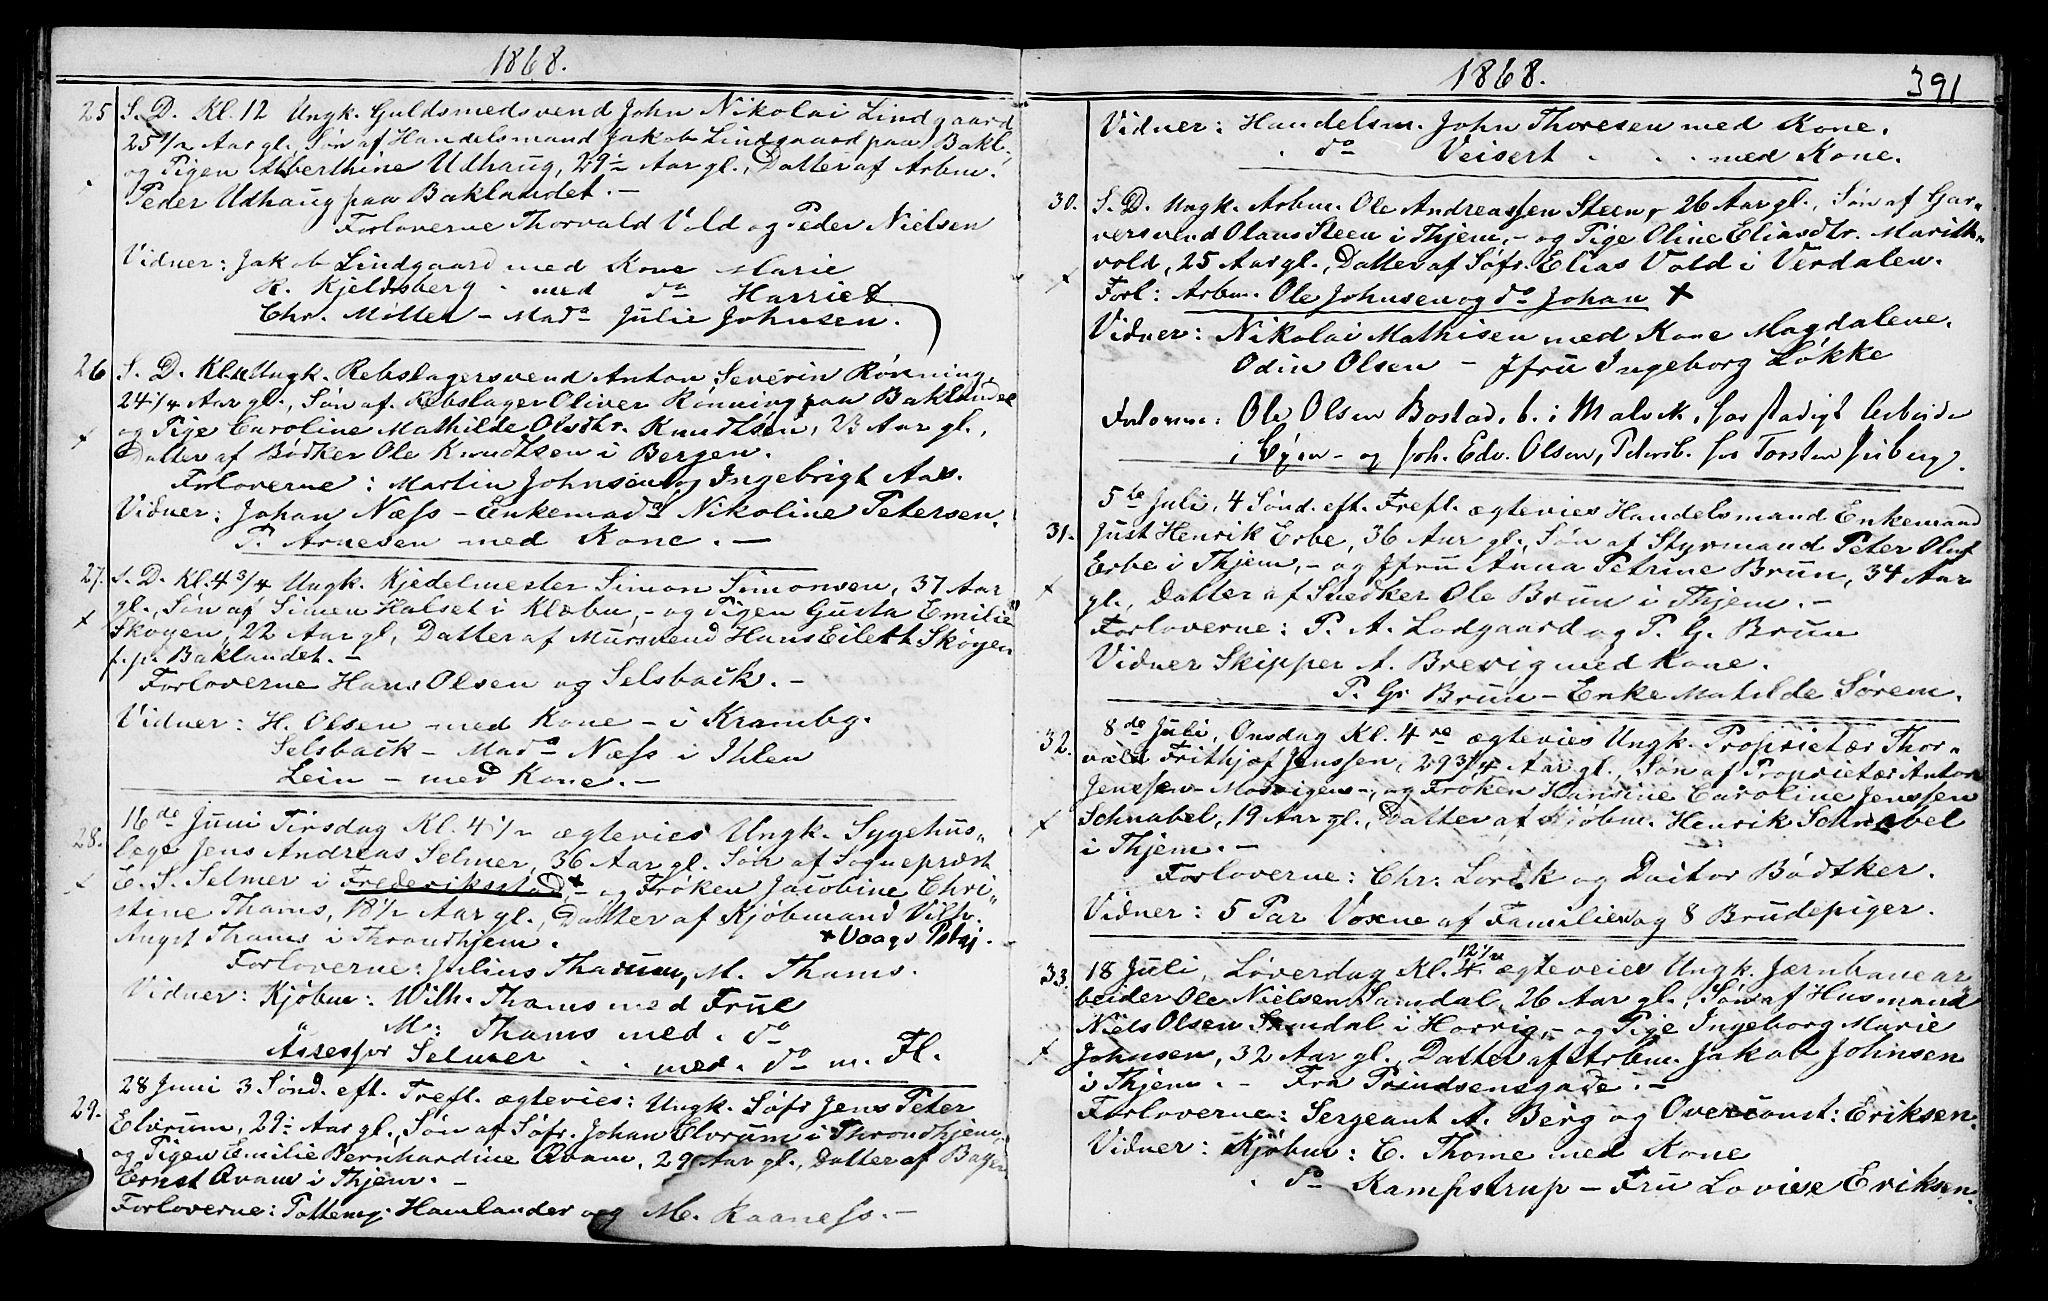 1868.
25 S. D. Kl. 12 Ungk. Guldsmedsvend John Nikolai Lindgaard
25 1/2 Aar gl., Søn af Handelsmand Jakob Lindgaard paa Bakl.,
og Pigen Alberthine Udhaug, 29 Aar gl., Datter af Arbm.
Peder Udhaug paa Baklandet. —
Forloverne Thorvald Vold og Peder Nielsen
Vidner: Jakob Lindgaard med Kone Marie
K. Kjeldsberg - med do Harriet
Chr. Möller — Mado Julie Johnsen.
26 S. D. Kl. Ungk. Rebslagersvend Anton Severin Rønning,
24 1/4 Aar gl., Søn af Rebslager Oliver Rønning paa Baklandet
og Pige Caroline Mathilde Olsdtr. Knudtsen, 23 Aar gl.,
Datter af Bødker Ole Knudtsen i Bergen.
Forloverne: Martin Johnsen og Ingebrigt Aas.
Vidner: Johan Næss — Enkemado Nikoline Petersen.
P. Arnesen med Kone. —
27. S. D. Kl. 4 3/4 Ungk. Kjedelmester Simon Simonsen, 37 Aar
gl., Søn af Simen Halset i Klæbu, — og Pigen Gusta Emilie
Skøyen, 22 Aar gl., Datter af Mursvend Hans Eilett Skøyen
p. p. Baklandet. —
Forloverne Hans Olsen og Selsback. —
Vidner: H. Olsen — med Kone — i Krambg.
Selsback — Mado Næss i Ihlen
Lein — med Kone. —
28. 16de Juni Tirsdag Kl. 4 1/2 ægtevies Ungk. Sygehus„
læge Jens Andreas Selmer, 36 Aar gl. Søn af Sogneprest
E. S. Selmer i Frederiksstad, + — og Frøken Jacobine Chri„
stine Thams, 18 1/2 Aar gl., Datter af Kjøbmand Vilh.
Augst Thams i Throndhjem. + Vaags Pstgj.
Forloverne: Julius Thaulow, M. Thams.
Vidner: Kjøbm: Wilh. Thams med Frue
„ M: Thams med do
Assessor Selmer . . med. do m. Fl.
29. 28 Juni 3 Sønd. eft. Trefl. ægtevies: Ungk. Søfr Jens Peter
Elvrum, 29 Aar gl., Søn af Søfr. Johan Elvrum i Throndhjem,
og Pigen Emilie Bernhardine Qvam, 29 Aar gl., Datter af Bager
Ernst Qvam i Thjem. —
Forloverne: Pottemg. Hamlander og M. Kaaness. —
1868. 391
Vidner: Handelsm. John Thoresen med Kone.
. do Veisert . . med Kone.
30. S. D. Ungk. Arbm. Ole Andreassen Steen, 26 Aar gl., Søn af Gar„
versvend Olaus Steen i Thjem, — og Pige Oline Eliasdtr. Marith„
vold, 25 Aar gl., Datter af Søfr. Elias Vold i Verdalen.
Forl: Arbm. Ole Johnsen og do Johan +
Vidner: Nikolai Mathisen med Kone Magdalene.
Odin Olsen — Jfru Ingeborg Løkke
Forlovere: Ole Olsen Bostad, b. i Malvik, har stadigt Arbeide
i Byen — og Joh. Edv. Olsen, Petersb. hos Torsten
31. 5te Juli, 4 Sønd. eft. Trefl. ægtevies Handelsmand Enkemand
Just Henrik Erbe, 36 Aar gl., Søn af Styrmand Peter Oluf
Erbe i Thjem, — og Jfru Anna Petrine Brun, 34 Aar
gl., Datter af Snedker Ole Brun i Thjem. —
Forloverne: P. A. Lodgaard og P. G. Brun
Vidner Skipper A. Brevig med Kone.
P. G. Brun — Enke Matilde Sørem.
32. 8de Juli, Onsdag Kl. 4re ægtevies Ungk. Proprietær Thor„
vald Frithjof Jenssen, 29 3/4 Aar gl., Søn af Proprietær Anton
Jenssen — — og Frøken Hansine Caroline Jenssen
Schnabel, 19 Aar gl., Datter af Kjøbm. Henrik Schnabel
i Thjem. —
Forloverne: Chr. Lorck og Doctor Bødtker.
Vidner: 5 Par Voxne af Familien og 8 Brudepiger.
33. 18 Juli, Løverdag Kl. 12 1/2 ægteveies Ungk. Jærnbanear„
beider Ole Nielsen Samdal, 26 Aar gl., Søn af Husmand
Niels Olsen Samdal i Horrig, — og Pige Ingeborg Marie
Johnsen, 32 Aar gl., Datter af Arbm. Jakob Johnsen
i Thjem. — Fra Prindsensgade. —
Forloverne: Sergeant A. Berg og Overconst: Eriksen.
Vidner: Kjøbm: C. Thome med Kone
. do Kampstrup — Fru Lovise Eriksen.